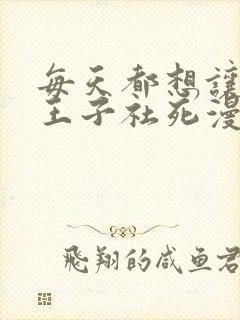 每天都想讓
王子社死漫
飛翔的咸鱼君